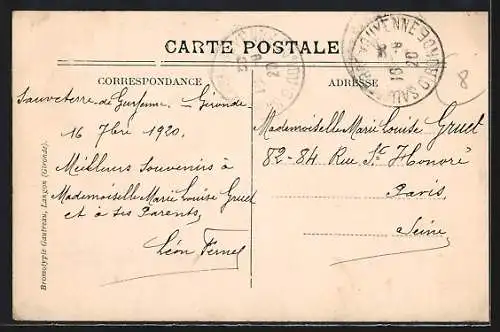 CARTE POSTALE
CORRESPONDANCE
Sauveterre de Guyenne — Gironde
16 7bre 1920.
Meilleurs Souvenirs à
Mademoiselle Marie Louise Gruet
et à ses Parents,
Léon
ADRESSE
Mademoiselle Marie Louise Gruet
82-84 Rue St Honoré
Paris.
Seine
Bromotypie Gautreau, Langon (Gironde).
8